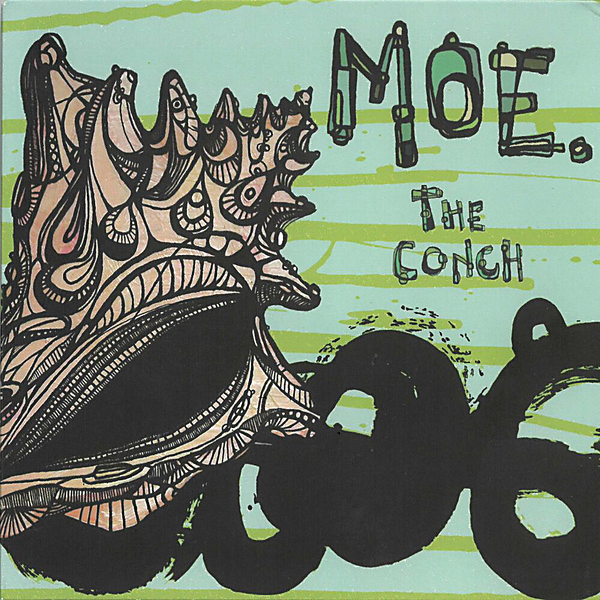 MOE.
THE
CONCH